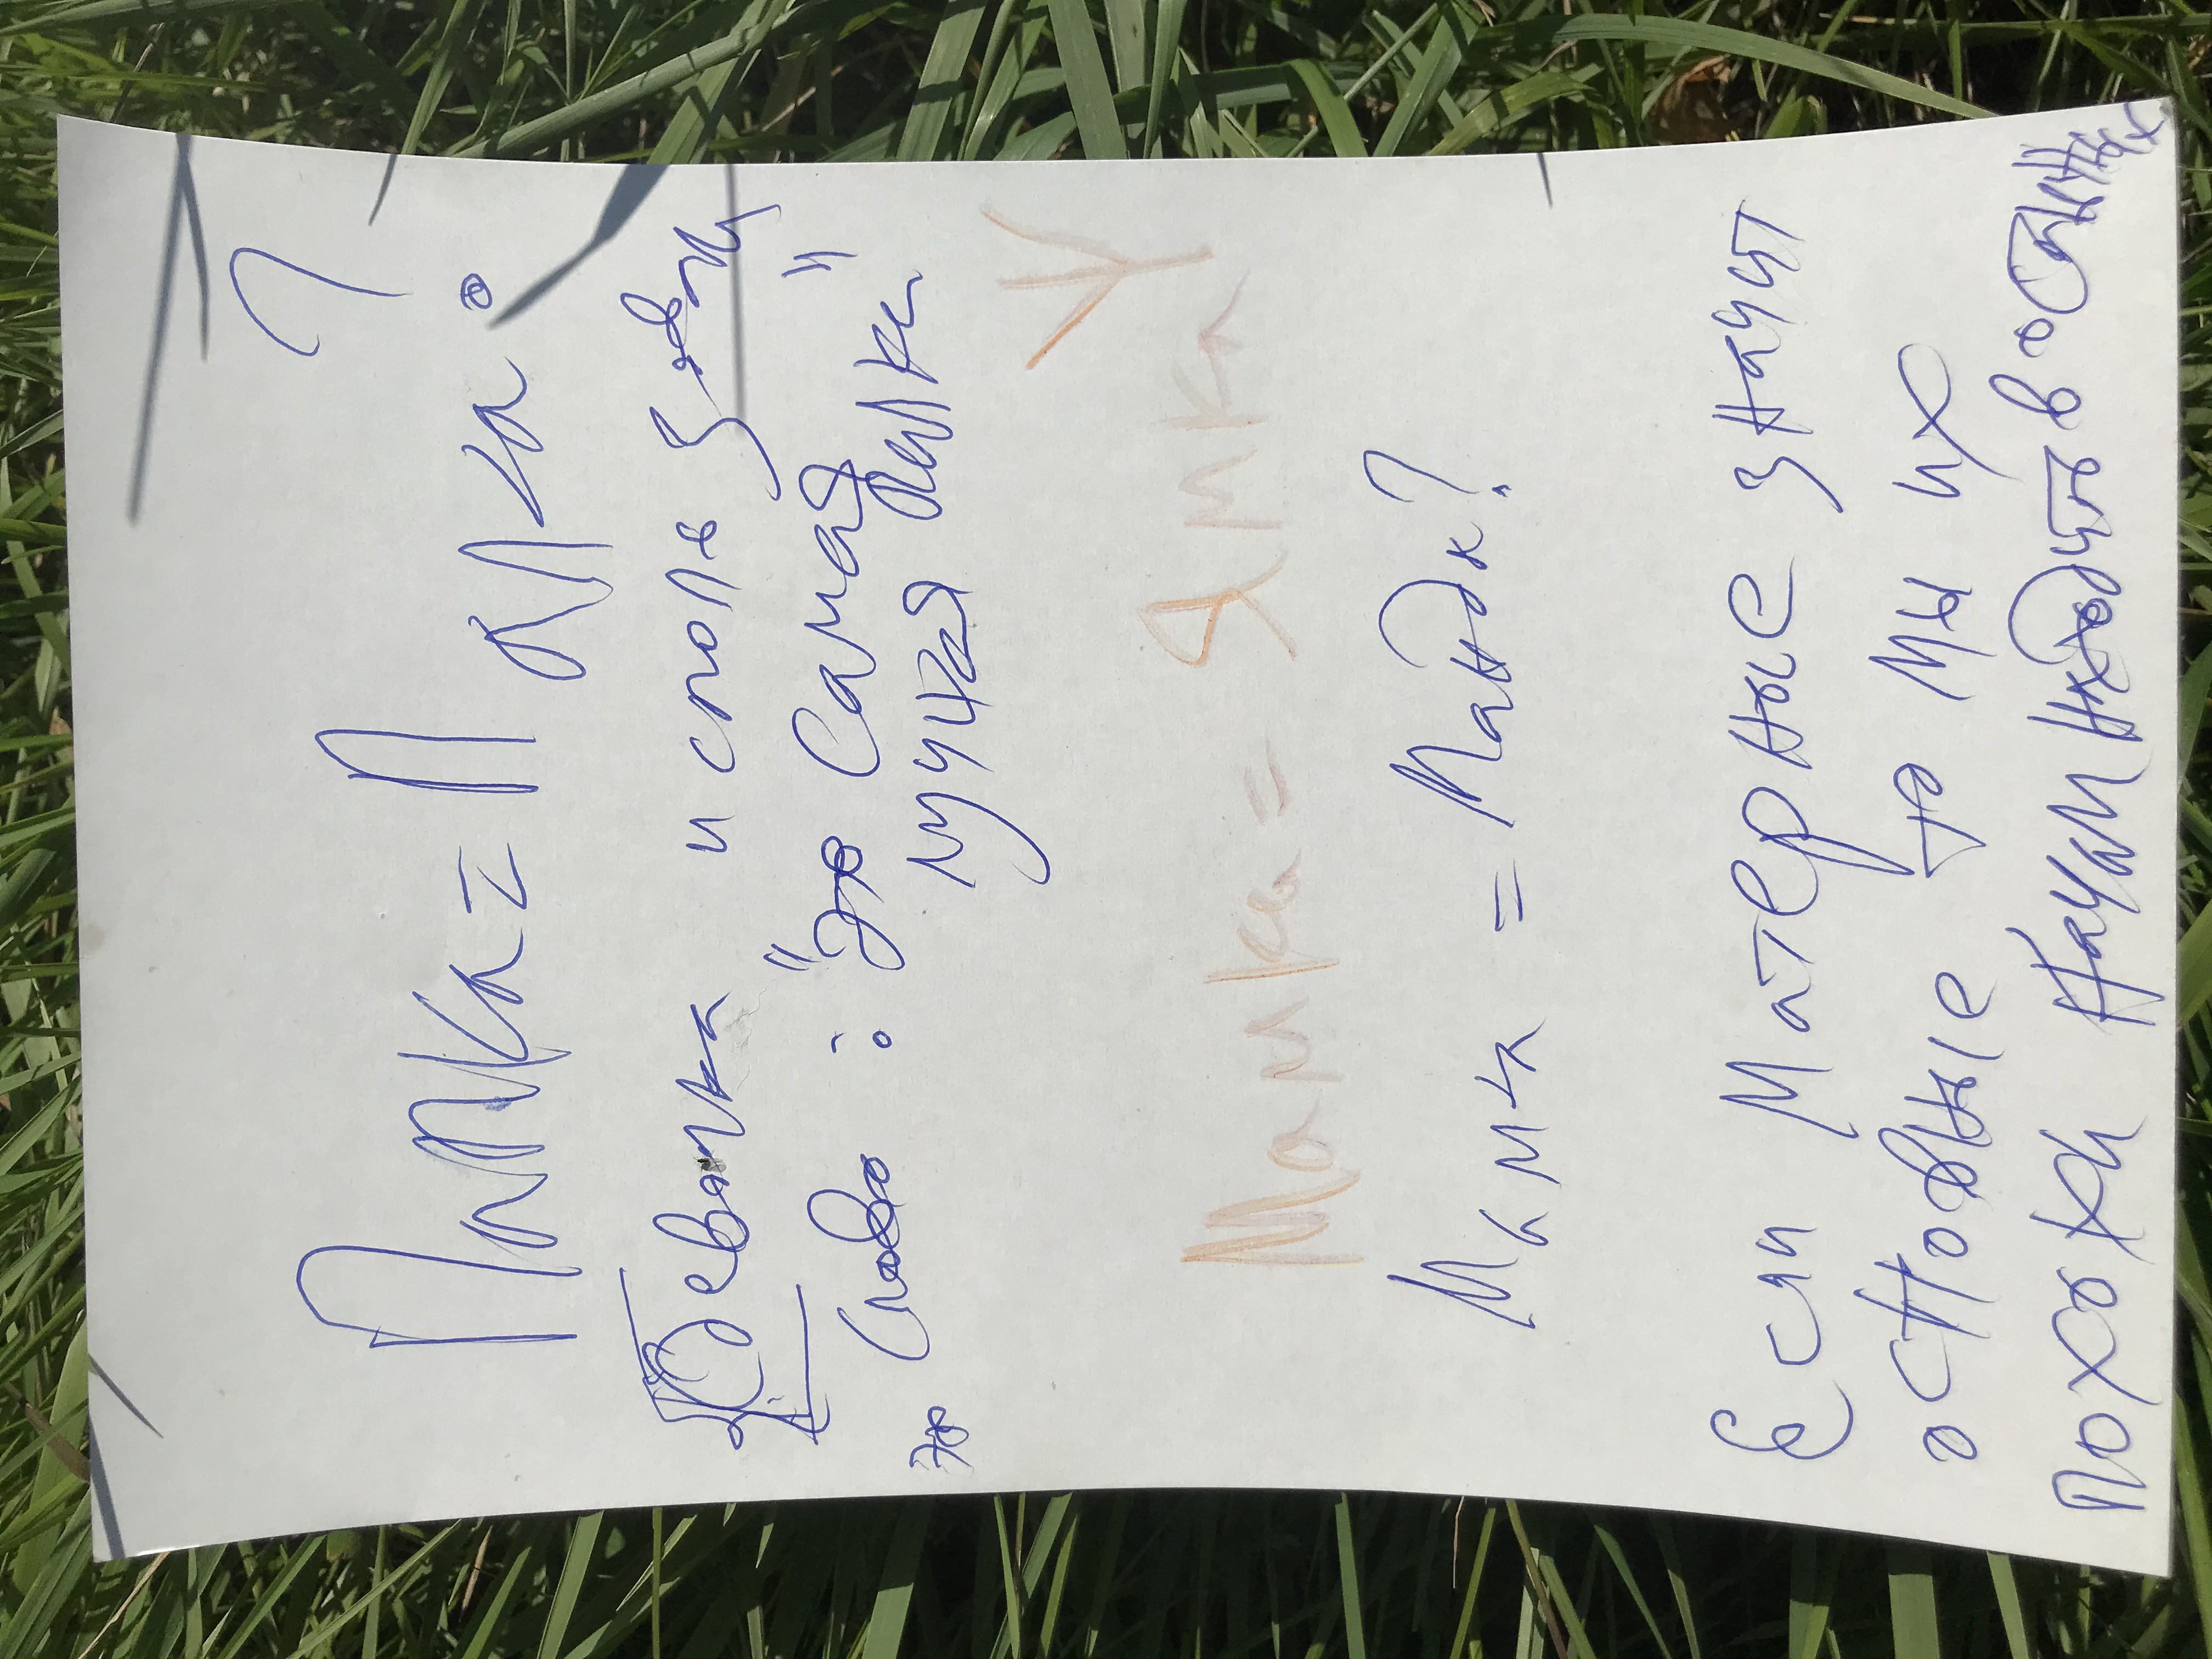 Папка = Палка?
Девочка использовал
Слово : "это самая
это лучшая палка"
Мамка = Ямка
Мамка = Манда?
Если Матерные значит
основные то мы их
похоже начали находить в остальных